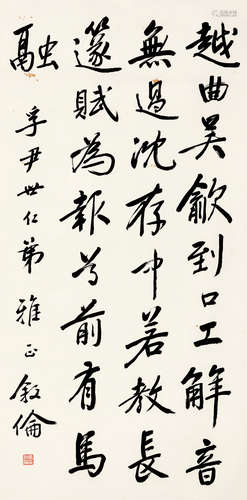 越曲吴歈到口工解音
無過沈存中若教長
篴賦為報道前有馬
融
孚尹世仁弟 雅正 叙倫